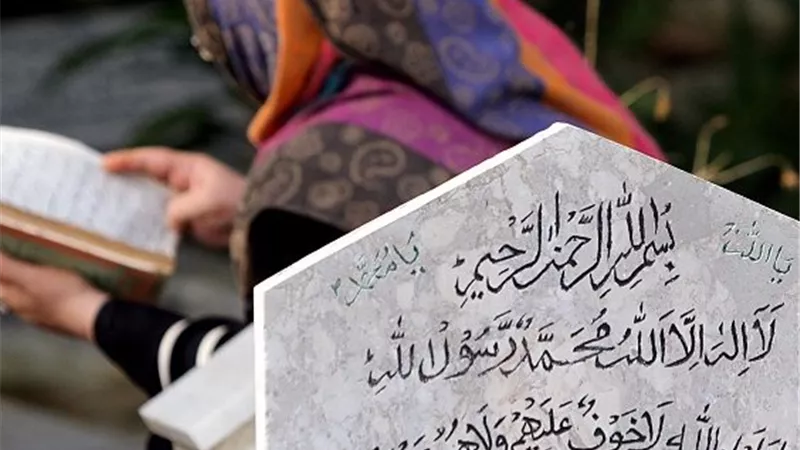 يا الله
بسم الله الرحمن الرحيم
يا محمد
لَا اِلٰهَ اِلَّا اللهُ مُحَمَّدٌ رَّسُوْلُ اللهِ
الله لَا خَوْفٌ عَلَيْهِمْ وَلَا هُمْ